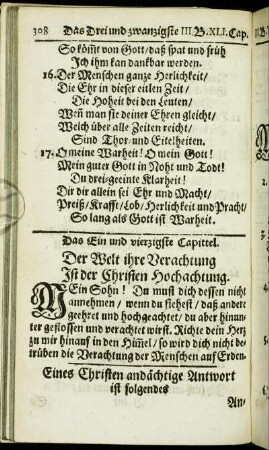 308 Das Drei und zwanzigste III. B. XLI. Cap.
So kömt von Gott/ daß spat und früh
Ich ihm kan dankbar werden.
16. Der Menschen ganze Herlichkeit/
Die Ehr in dieser eitlen Zeit/
Die Hoheit bei den Leuten/
Weñ man sie deiner Ehren gleicht/
Welch über alle Zeiten reicht/
Sind Thor- und Eitelheiten.
17. O meine Warheit! O mein Gott!
Mein guter Gott in Noht und Todt!
Du drei-geeinte Klarheit!
Dir dir allein sei Ehr und Macht/
Preiß/ Krafft/ Lob/ Herlichkeit und Pracht/
So lang als Gott ist Warheit.
Das Ein und vierzigste Capittel.
Der Welt ihre Verachtung
Ist der Christen Hochachtung.
MEin Sohn! Du must dich dessen nicht
annehmen/ wenn du siehest/ daß andere
geehret und hochgeachtet/ du aber hinun-
ter gestossen und verachtet wirst. Richte dein Herz
zu mir hinauf in den Him̃el/ so wird dich nicht be-
trüben die Verachtung der Menschen auf Erden.
Eines Christen andächtige Antwort
ist folgendes
An-